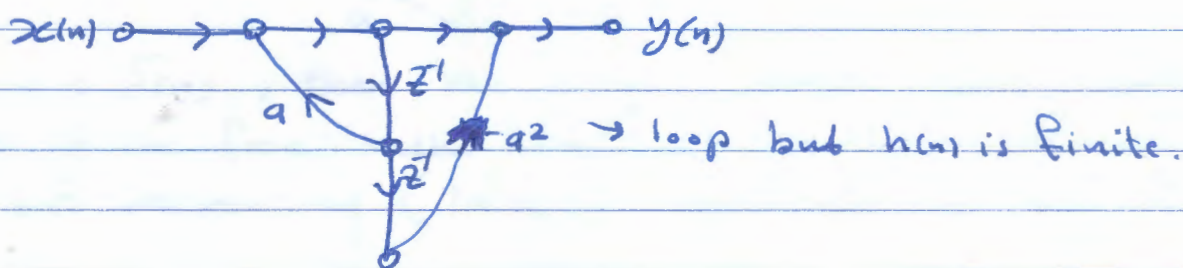 x(n) y(n)
z⁻¹
a
-a² → loop but h(n) is finite.
z⁻¹